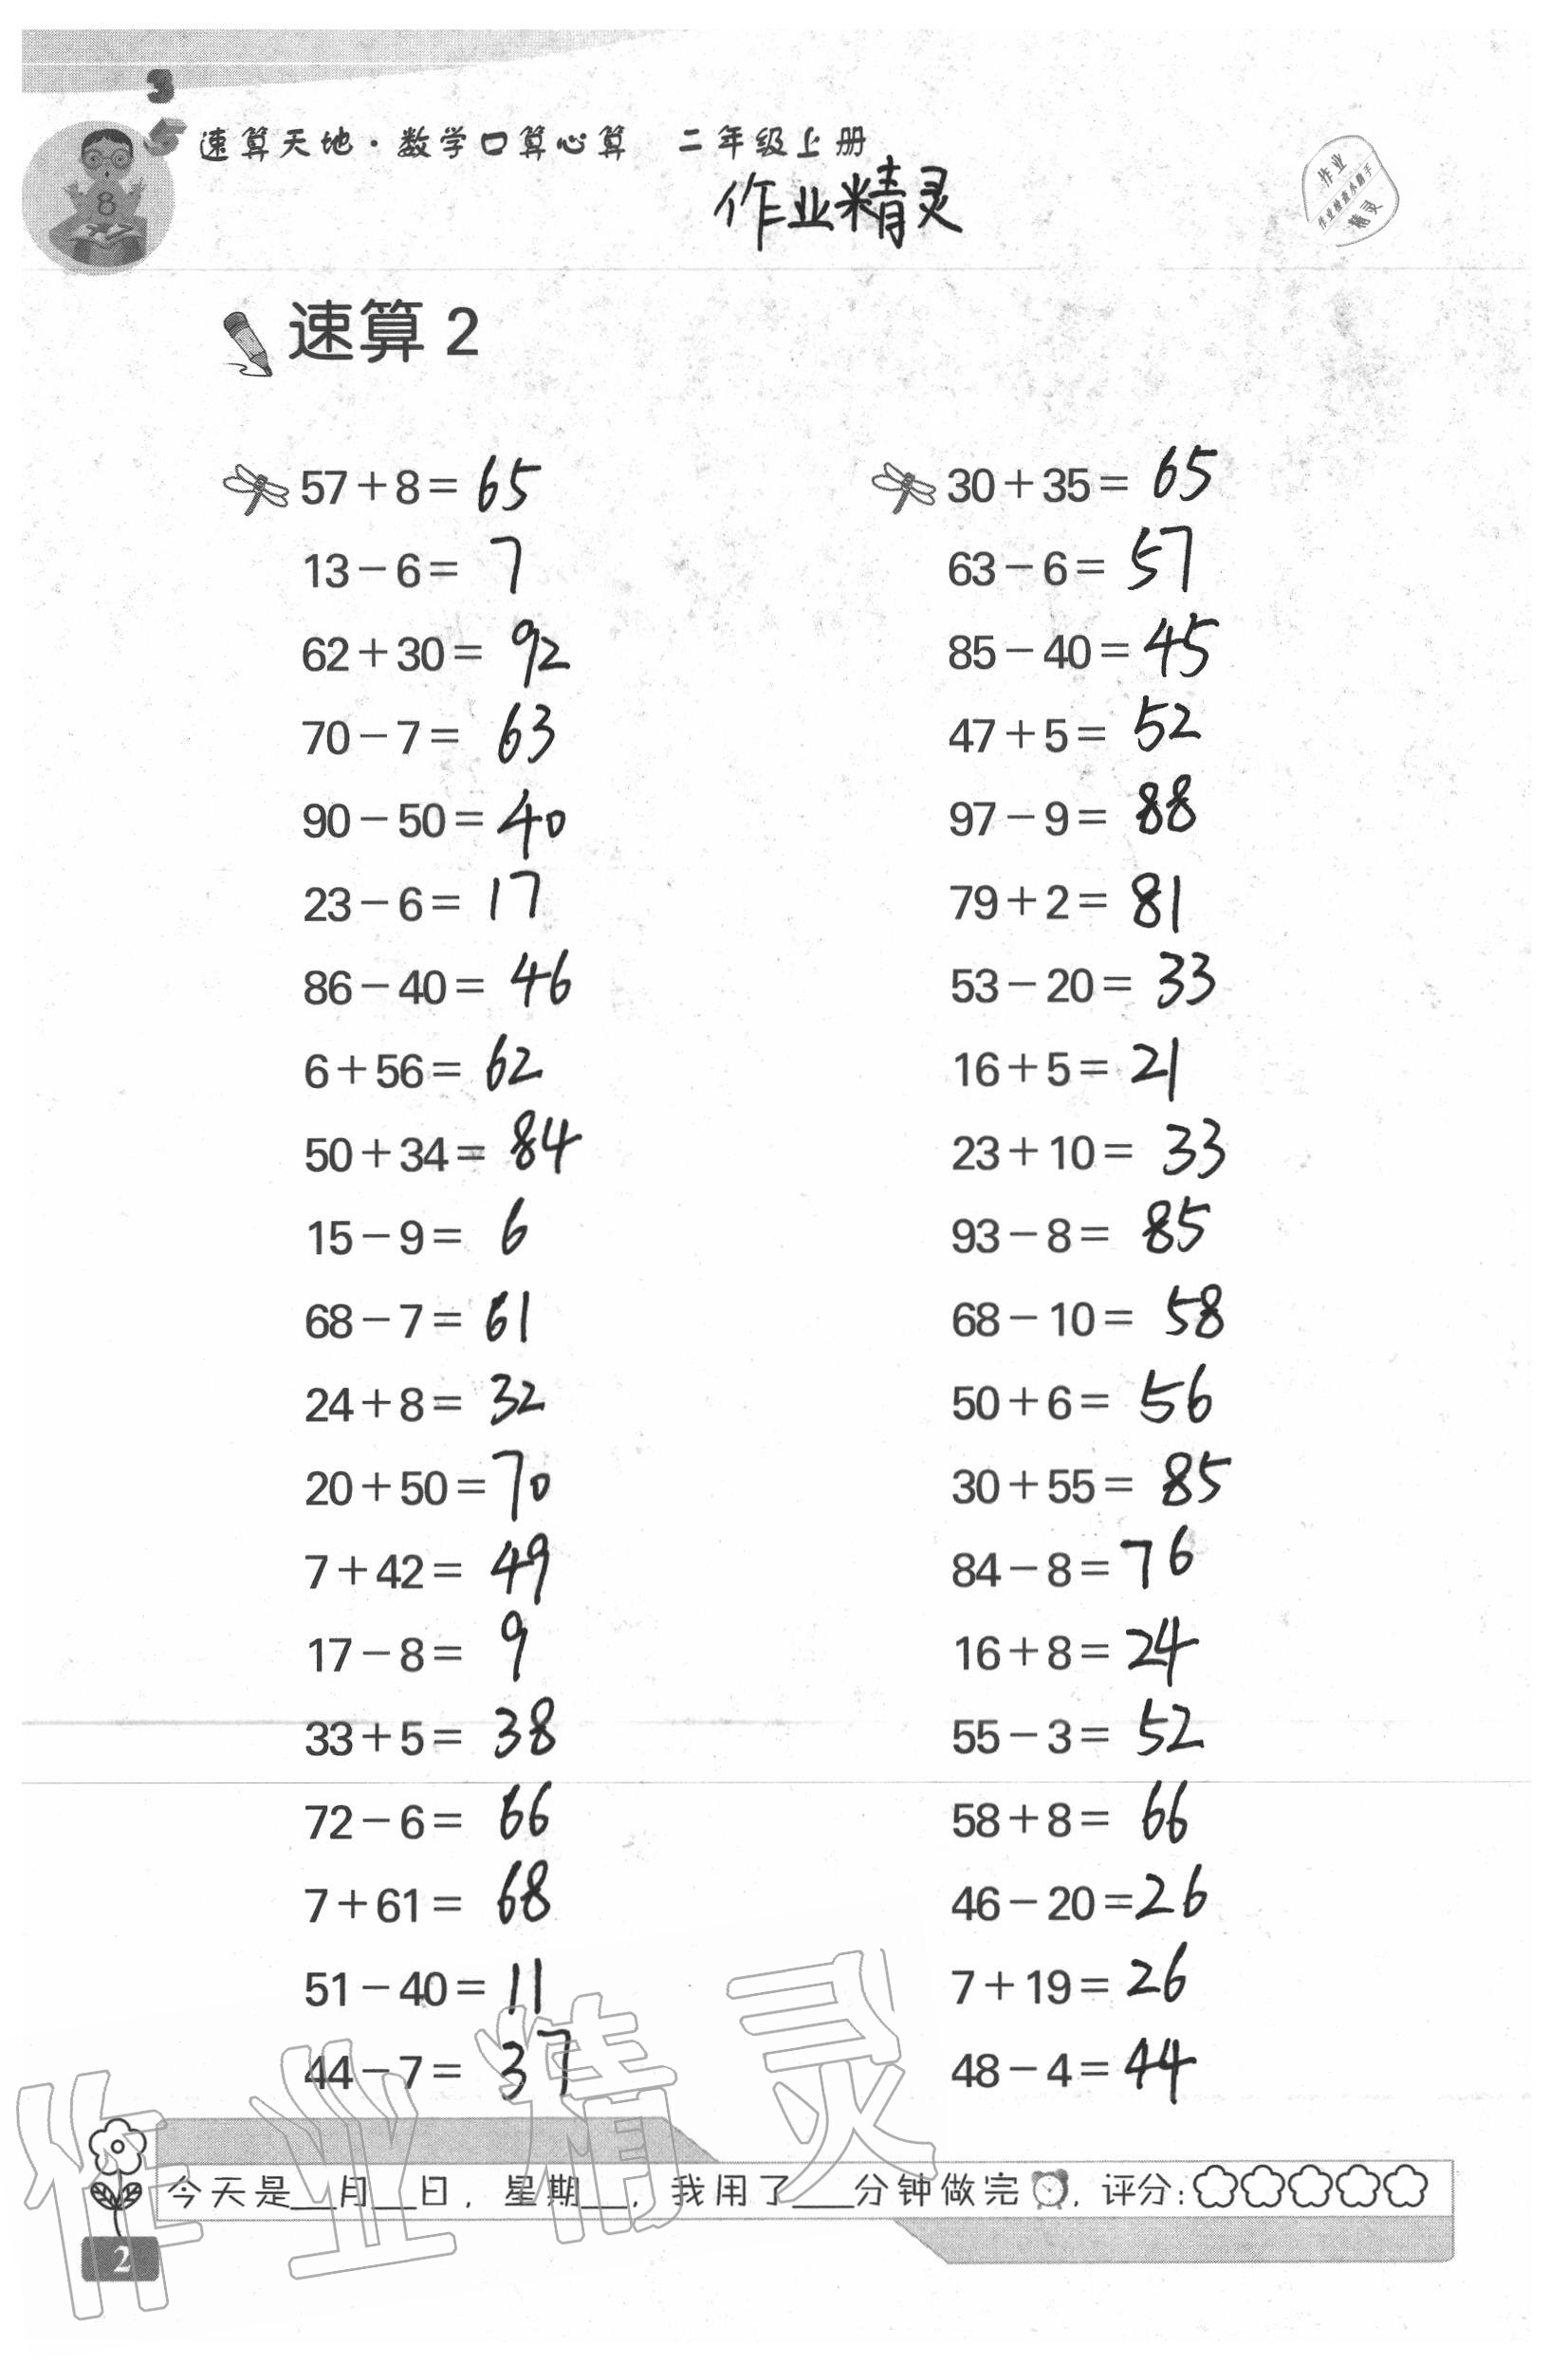 3
5
速算天地·数学口算心算 二年级上册
8
作业精灵
作业
作业检查小助手
精灵
速算 2
57+8=65
13-6=7
62+30=92
70-7=63
90-50=40
23-6=17
86-40=46
6+56=62
50+34=84
15-9=6
68-7=61
24+8=32
20+50=70
7+42=49
17-8=9
33+5=38
72-6=66
7+61=68
51-40=11
44-7=37
30+35=65
63-6=57
85-40=45
47+5=52
97-9=88
79+2=81
53-20=33
16+5=21
23+10=33
93-8=85
68-10=58
50+6=56
30+55=85
84-8=76
16+8=24
55-3=52
58+8=66
46-20=26
7+19=26
48-4=44
作业精灵
今天是__月__日，星期__，我用了__分钟做完，评分:
2